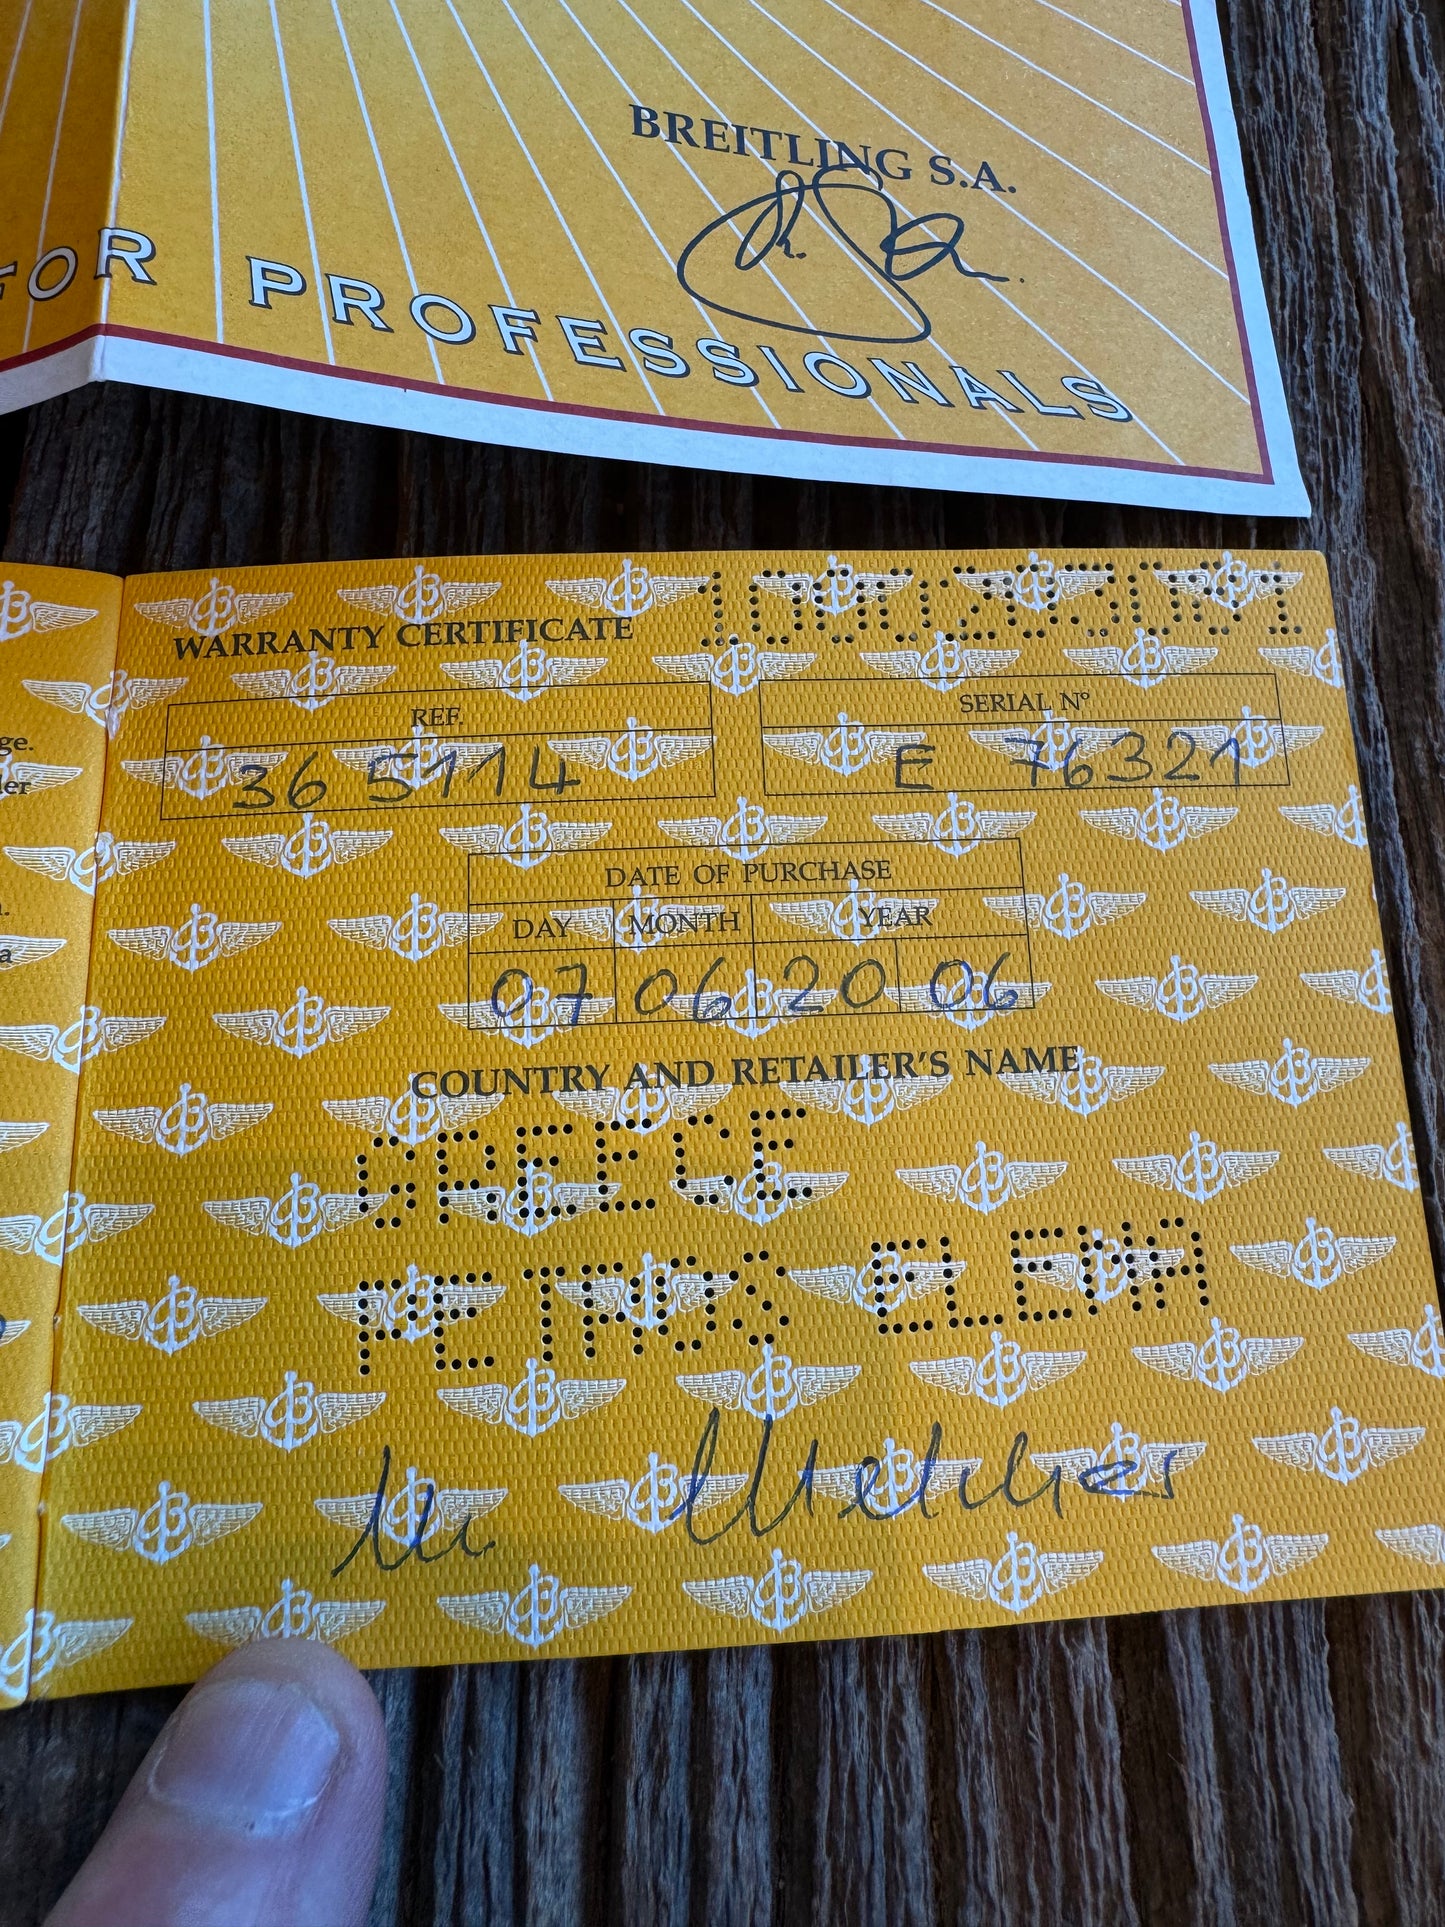 BREITLING S.A.
FOR PROFESSIONALS
WARRANTY CERTIFICATE
REF.
SERIAL Nº
36 5114
E 76321
DATE OF PURCHASE
DAY MONTH YEAR
07 06 20 06
COUNTRY AND RETAILER'S NAME
GREECE
PETROS ELENA
ge.
ler
a